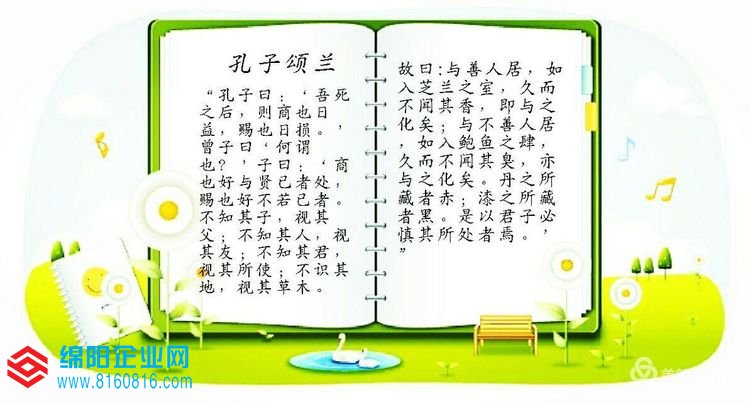 孔子颂兰
“孔子曰：‘吾死
之后，则商也日
益，赐也日损。’
曾子曰‘何谓
也？’子曰：‘商
也好与贤己者处，
赐也好不若己者。
不知其子，视其
父；不知其人，视
其友；不知其君，
视其所使；不识其
地，视其草木。
故曰:与善人居，如
入芝兰之室，久而
不闻其香，即与之
化矣；与不善人居
，如入鲍鱼之肆，
久而不闻其臭，亦
与之化矣。丹之所
藏者赤；漆之所藏
者黑。是以君子必
慎其所处者焉。’
”
绵阳企业网
www.8160816.com